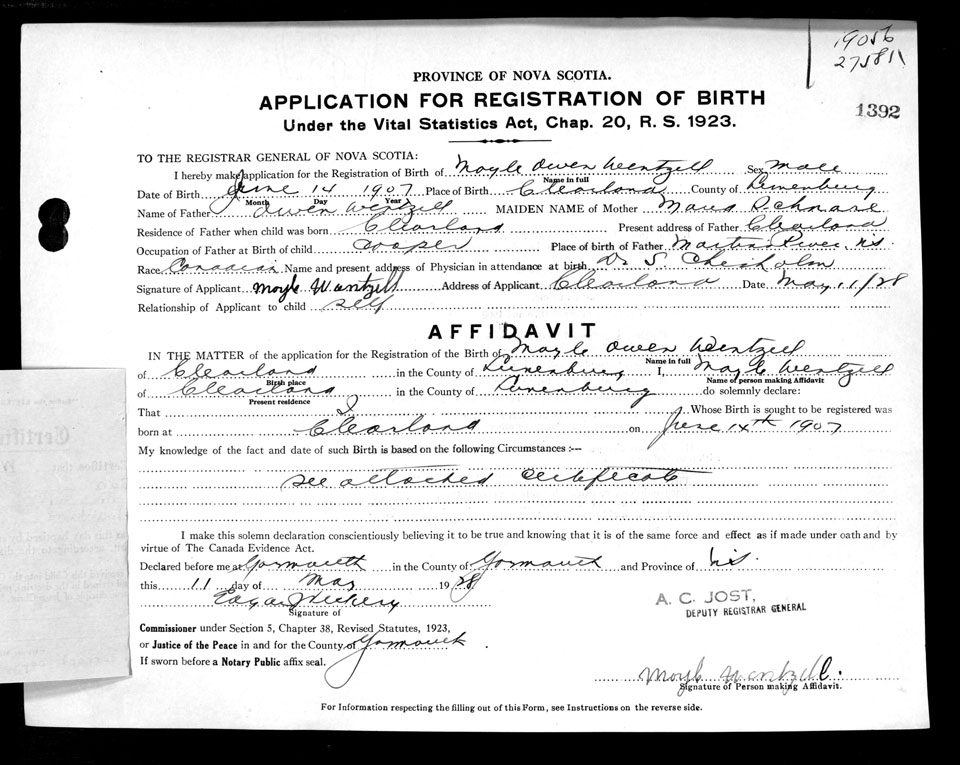 19056
275811
PROVINCE OF NOVA SCOTIA.
APPLICATION FOR REGISTRATION OF BIRTH
1392
Under the Vital Statistics Act, Chap. 20, R. S. 1923.
TO THE REGISTRAR GENERAL OF NOVA SCOTIA:
I hereby make application for the Registration of Birth of Moyle Owen Wentzell Sex Male
Name in full
Date of Birth June 14 1907 Place of Birth Clearland County of Lunenburg
Month Day Year
Name of Father Owen Wentzell MAIDEN NAME of Mother Maud Schnare
Residence of Father when child was born Clearland Present address of Father Clearland
Occupation of Father at Birth of child Cooper Place of birth of Father Martins River, N.S.
Race Canadian Name and present address of Physician in attendance at birth Dr S. Chesholm
Signature of Applicant Moyle Wentzell Address of Applicant Clearland Date, May 11/28
Relationship of Applicant to child self
AFFIDAVIT
IN THE MATTER of the application for the Registration of the Birth of Moyle Owen Wentzell
Name in full
of Clearland in the County of Lunenburg I, Moyle Wentzell
Birth place Name of person making Affidavit
of Clearland in the County of Lunenburg do solemnly declare:
Present residence
That I Whose Birth is sought to be registered was
born at Clearland on June 14th 1907
My knowledge of the fact and date of such Birth is based on the following Circumstances :--
see attached certificate
I make this solemn declaration conscientiously believing it to be true and knowing that it is of the same force and effect as if made under oath and by
virtue of The Canada Evidence Act.
Declared before me at Yarmouth in the County of Yarmouth and Province of N.S.
this 11 day of May 1928
Edgar
Signature of
A. C. JOST,
DEPUTY REGISTRAR GENERAL
Commissioner under Section 5, Chapter 38, Revised Statutes, 1923,
or Justice of the Peace in and for the County of Yarmouth
If sworn before a Notary Public affix seal.
Moyle Wentzell.
Signature of Person making Affidavit.
For Information respecting the filling out of this Form, see Instructions on the reverse side.